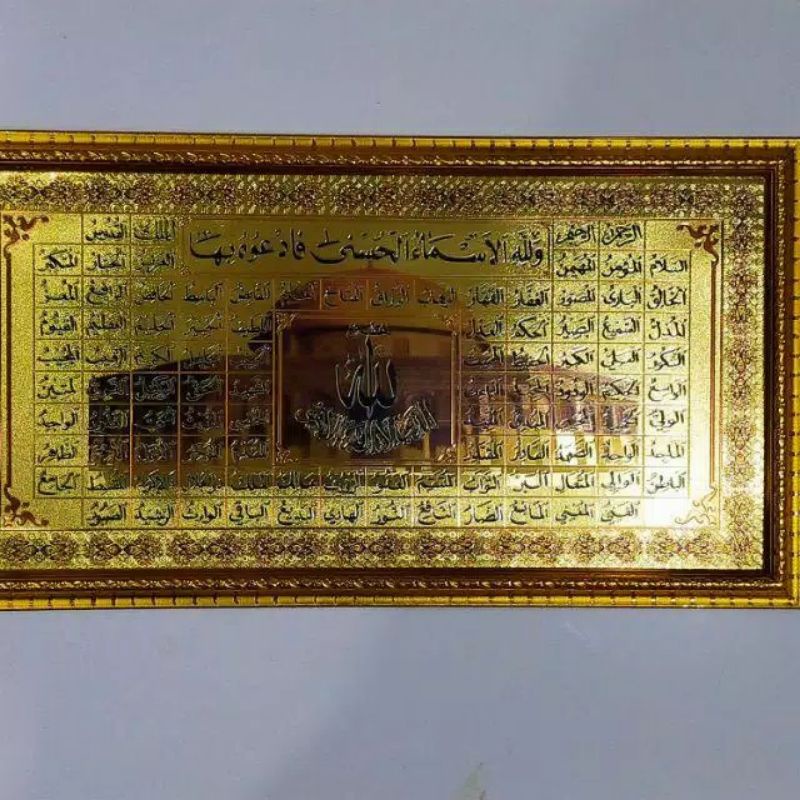 الرحمن الرحيم وَلِلَّهِ الأَسْمَاءُ الْحُسْنَى فَادْعُوهُ بِهَا الملك القدوس
السلام المؤمن المهيمن العزيز الجبار المتكبر
الخالق البارئ المصور الغفار القهار الوهاب الرزاق الفتاح العليم القابض الباسط الخافض الرافع المعز
المذل السميع البصير الحكم العدل اللطيف الخبير الحليم العظيم الغفور
الشكور العلي الكبير الحفيظ المقيت الجليل الكريم الرقيب المجيب
الواسع الحكيم الودود المجيد الباعث الشهيد الحق الوكيل القوي المتين
الله
الولي الحميد المحصي المبدئ المعيد المحيي المميت الحي القيوم الواجد
الماجد الواحد الصمد القادر المقتدر المقدم المؤخر الأول الآخر الظاهر
الباطن الوالي المتعال البر التواب المنتقم العفو الرؤوف مالك الملك المقسط الجامع
الغني المغني المانع الضار النافع النور الهادي البديع الباقي الوارث الرشيد الصبور